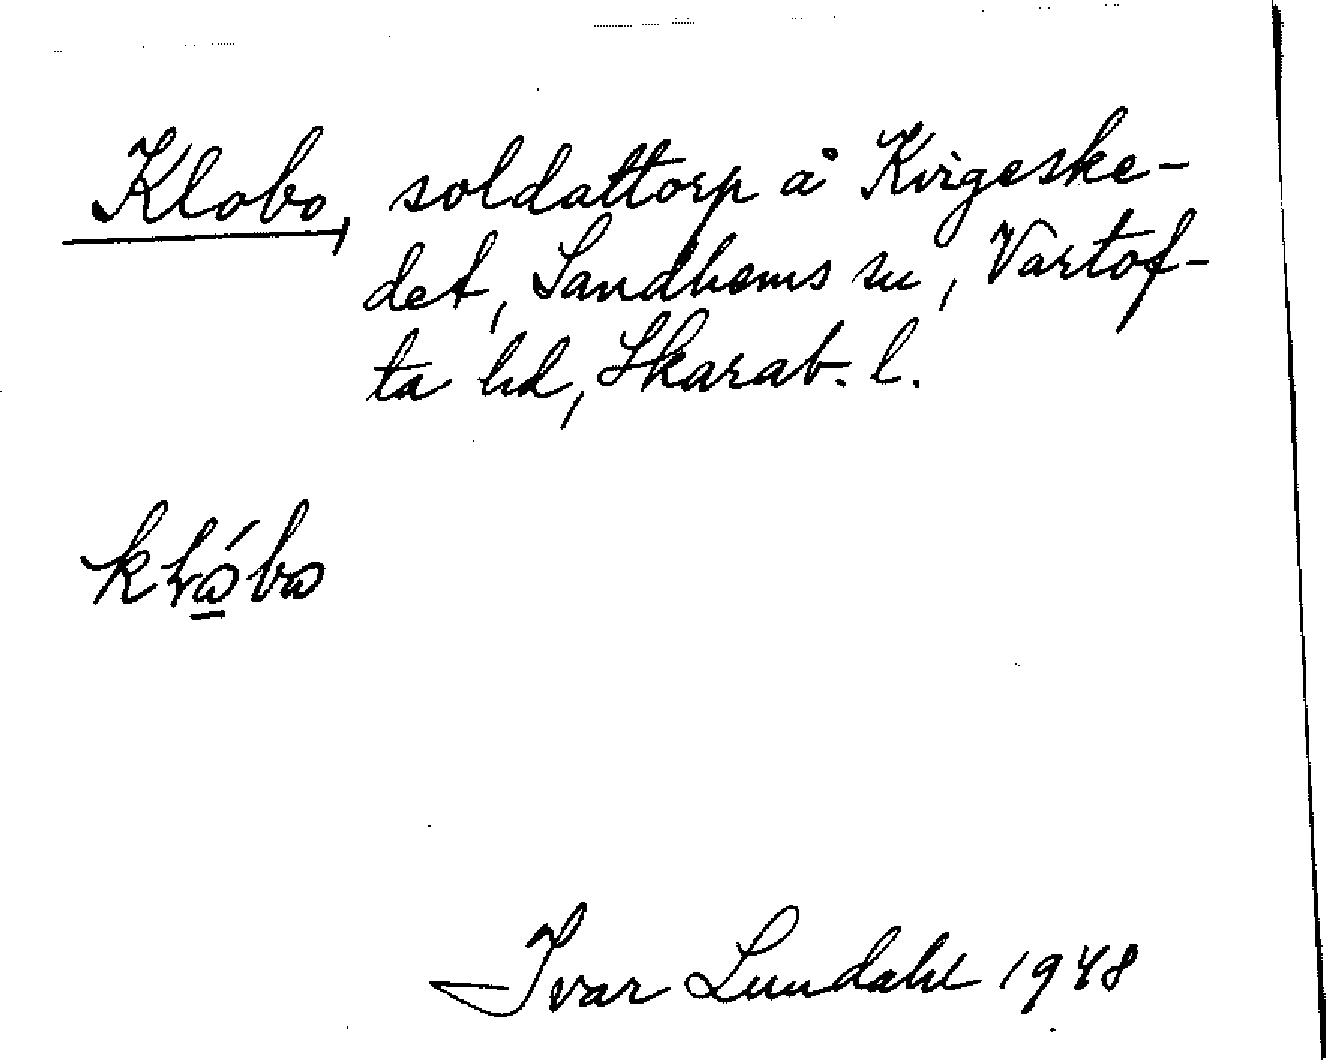 Klobo, soldattorp å Kvigeske-
det, Sandhems sn, Vartof-
ta hd, Skarab. l.
Ivar Lundahl 1948